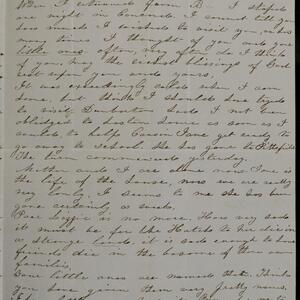 When I returned from B— I stopped
one night in Concord. I cannot tell you
how much I wished to visit you, or how
many times I thought of you and your
little ones, often, very often do I think
of you. May the richest blessings of God
rest upon you and yours.
It was exceedingly cold when I came
home, but think I should have tried
to visit Dunbarton had I not been
obliged to hasten home as soon as I
could, to help Cousin Jane get ready to
go away to School. She has gone to Pittsfield
The term commenced yesterday.
Mother and I are alone now. Jane is
the life of the house, now we are really
very lonely. It seems to me she has been
gone certainly a week.
Poor Lizzie is no more. How very sad
it must be for the to die in
a strange land. it is sad enough to have
friends die in the bosom of their own
families.
Your little ones are named that. Think
you have given them very pretty names.